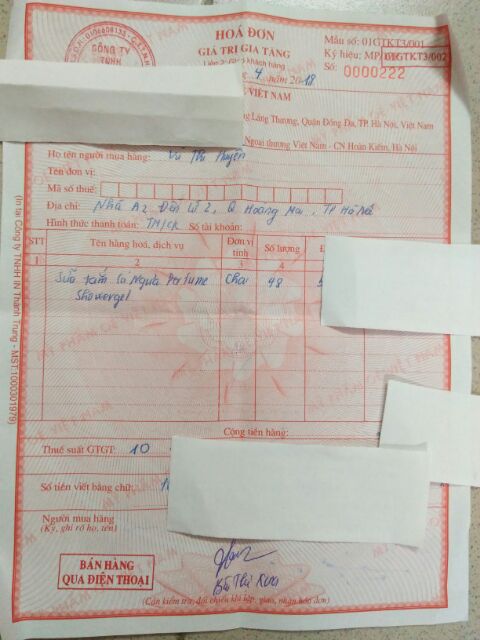 HOÁ ĐƠN
GIÁ TRỊ GIA TĂNG
Mẫu số: 01GTKT3/001
Ký hiệu: MP/ 01GTKT3/002
Số: 0000222
4 năm 2018
CÔNG TY
TNHH
VIỆT NAM
Láng Thượng, Quận Đống Đa, TP. Hà Nội, Việt Nam
Ngoại thương Việt Nam - CN Hoàn Kiếm, Hà Nội
Họ tên người mua hàng: Vũ Thị Huyền
Tên đơn vị:
Mã số thuế:
Địa chỉ: Nhà A2 Đền Lừ 2, Q Hoàng Mai, TP Hà Nội
Hình thức thanh toán: TM/CK Số tài khoản:
STT Tên hàng hoá, dịch vụ Đơn vị tính Số lượng
1 2 3 4
Sữa tắm Cá Ngựa Perfume Chai 48
Showergel
Cộng tiền hàng:
Thuế suất GTGT: 10
Số tiền viết bằng chữ:
Người mua hàng
(Ký, ghi rõ họ, tên)
BÁN HÀNG
QUA ĐIỆN THOẠI
(Cần kiểm tra, đối chiếu khi lập, giao, nhận hóa đơn)
(In tại Công ty TNHH IN Thành Trung - MST: 1000301979)